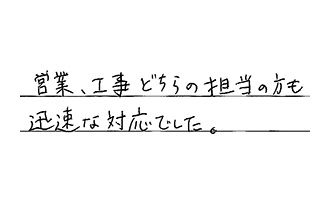 営業、工事どちらの担当の方も
迅速な対応でした。